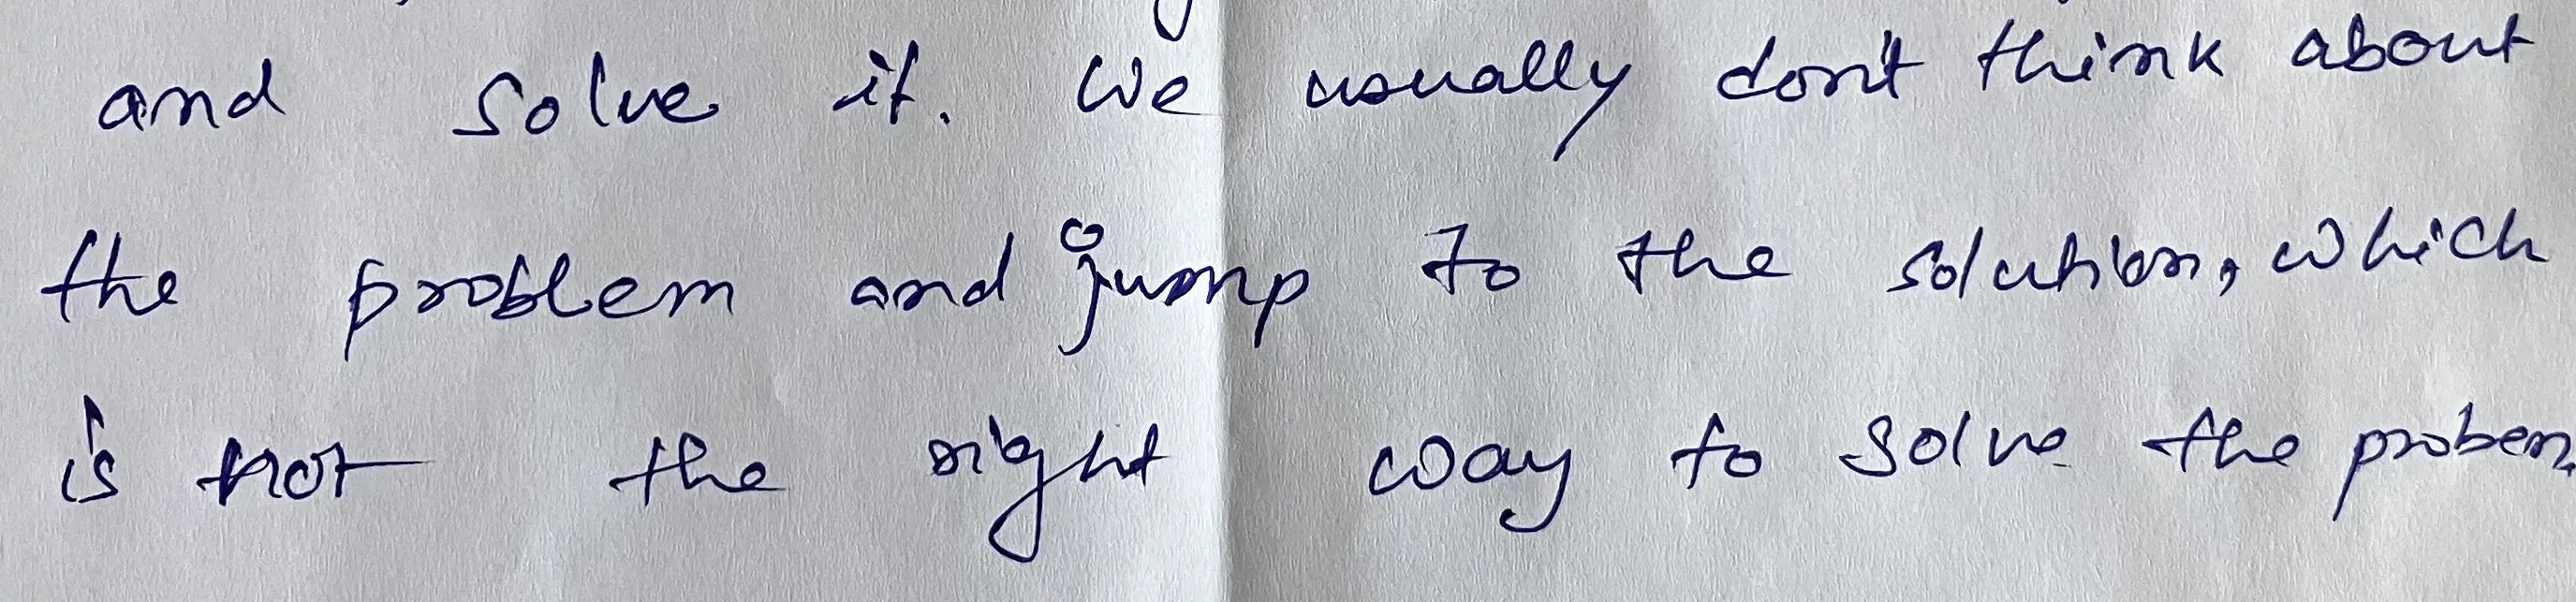 and solve it. We usually don't think about
the problem and jump to the solution, which
is not the right way to solve the probem.